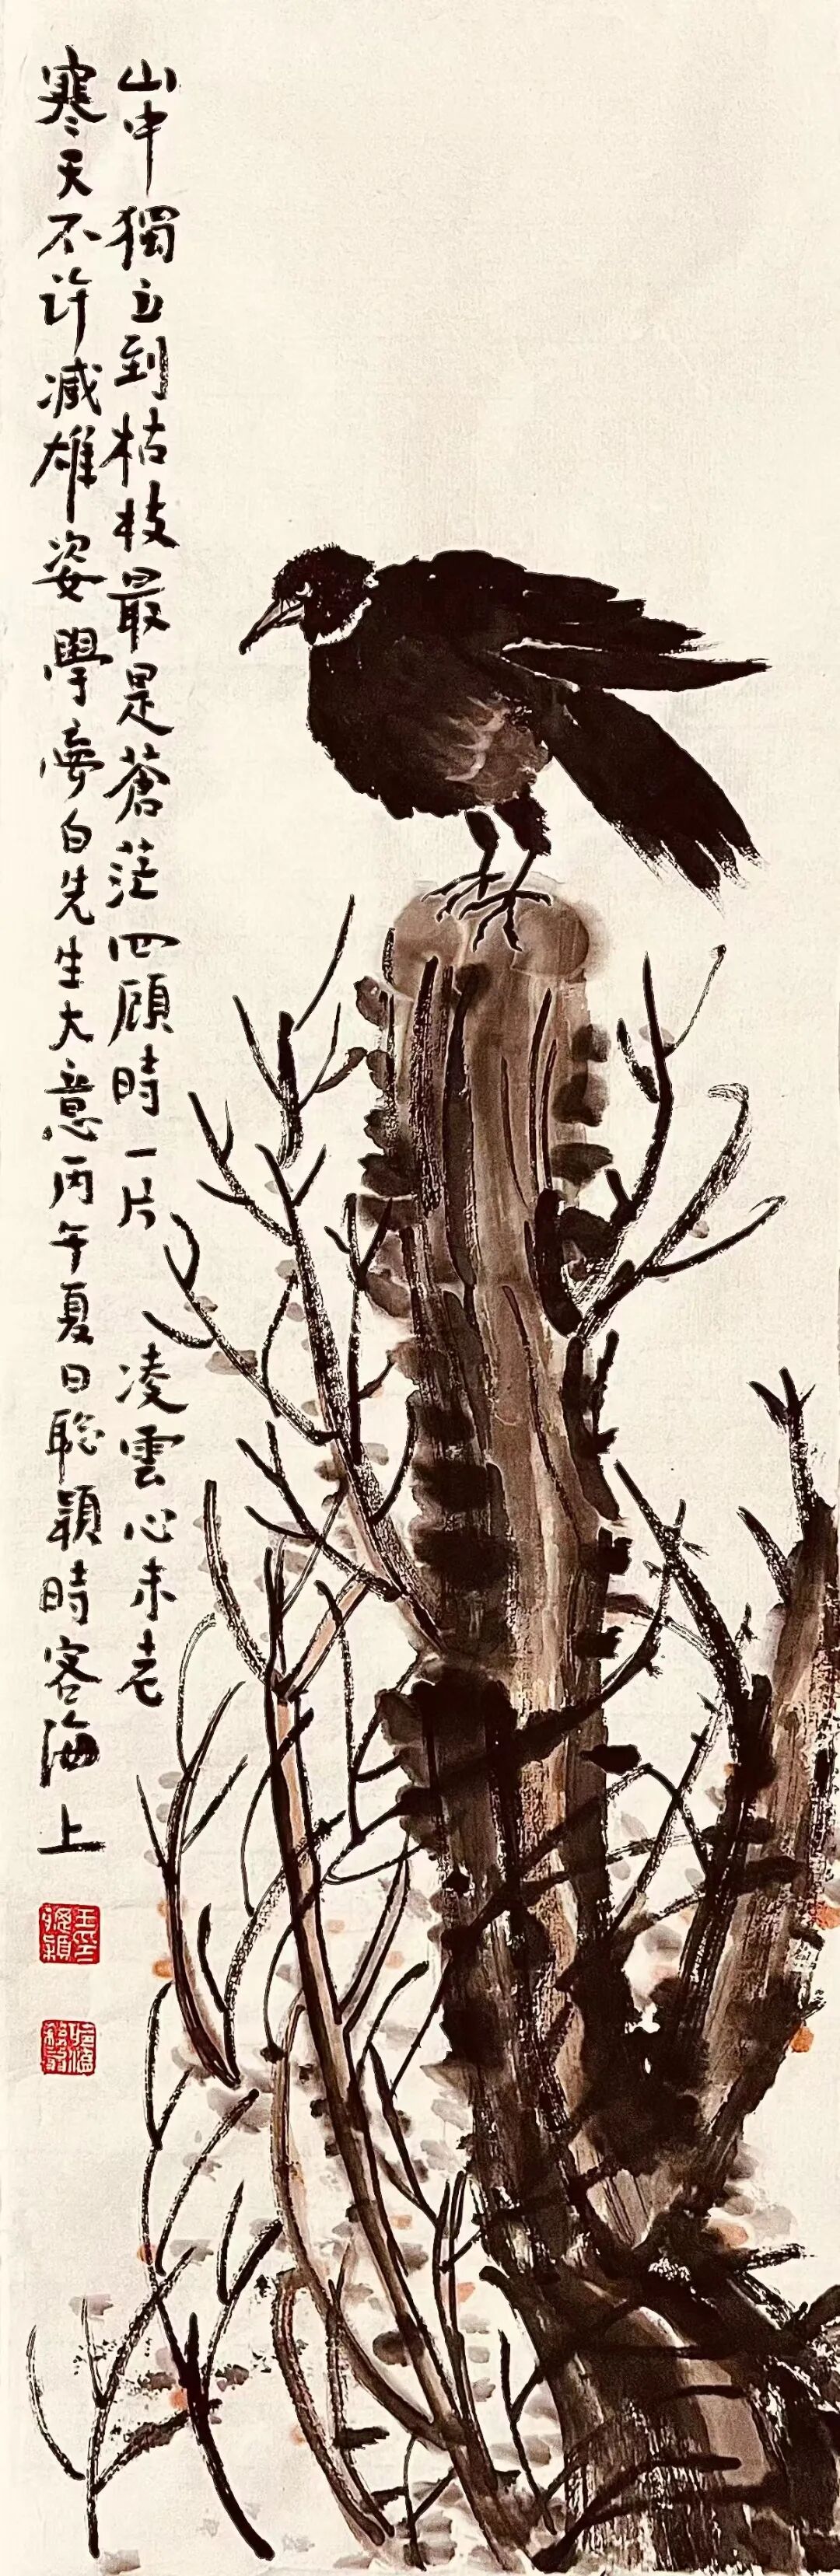 山中獨立到枯枝最是蒼茫四顧時一片凌雲心未老
寒天不许减雄姿學壽白先生大意丙午夏日聪穎時客海上